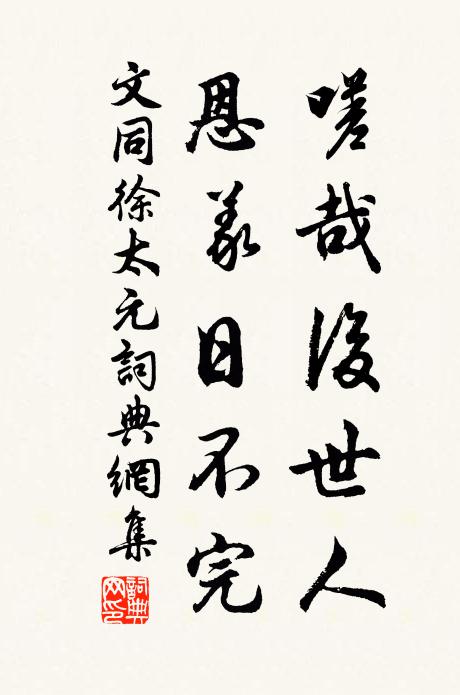 嗟哉後世人
恩義日不完
文同徐太元詞典網集
詞典網印